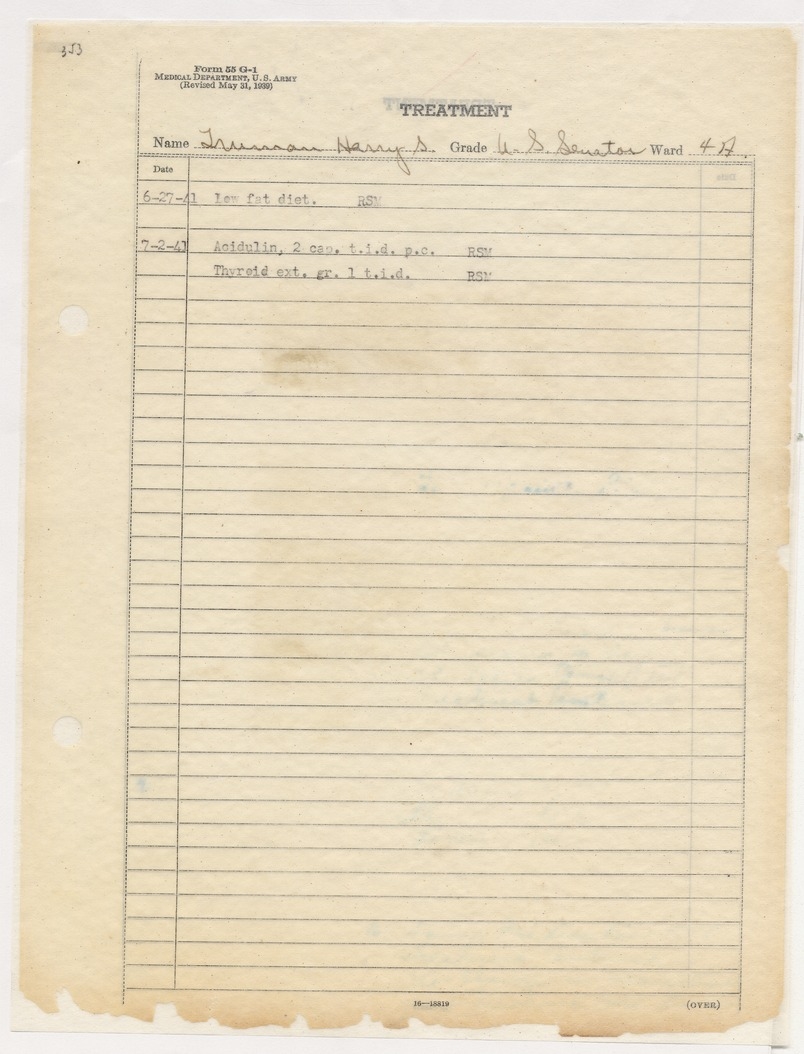 353
Form 55 G-1
MEDICAL DEPARTMENT, U.S. ARMY
(Revised May 31, 1939)
TREATMENT
Name Truman Harry S. Grade U.S. Senator Ward 4A.
Date
6-27-41 Low fat diet. RSM
7-2-41 Acidulin, 2 cap. t.i.d. p.c. RSM
Thyroid ext. gr. 1 t.i.d. RSM
16—18819 (OVER)